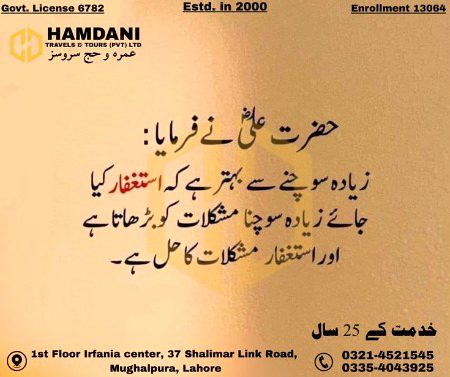 Govt. License 6782
Estd. in 2000
Enrollment 13064
HAMDANI
TRAVELS & TOURS (PVT) LTD
عمرہ و حج سروسز
حضرت علیؓ نے فرمایا:
زیادہ سوچنے سے بہتر ہے کہ استغفار کیا
جائے زیادہ سوچنا مشکلات کو بڑھاتا ہے
اور استغفار مشکلات کا حل ہے۔
خدمت کے 25 سال
1st Floor Irfania center, 37 Shalimar Link Road,
Mughalpura, Lahore
0321-4521545
0335-4043925